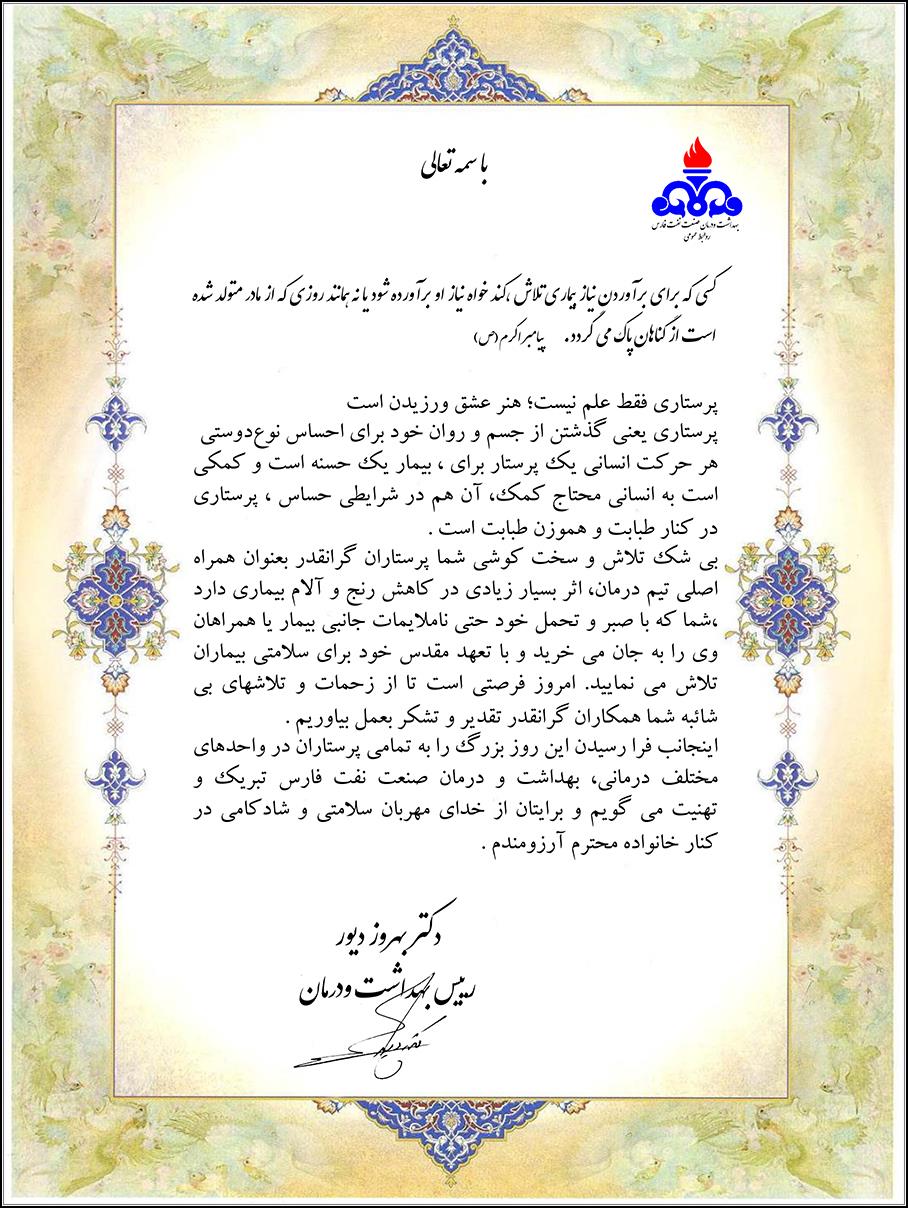 باسمه تعالی
بهداشت ودرمان صنعت نفت فارس
روابط عمومی
کسی که برای برآوردن نیاز بیماری تلاش ،کند خواه نیاز او برآورده شود یا نه همانند روزی که از مادر متولد شده
است از گناهان پاک می گردد. پیامبر اکرم (ص)
پرستاری فقط علم نیست؛ هنر عشق ورزیدن است
پرستاری یعنی گذشتن از جسم و روان خود برای احساس نوع‌دوستی
هر حرکت انسانی یک پرستار برای ، بیمار یک حسنه است و کمکی
است به انسانی محتاج کمک، آن هم در شرایطی حساس ، پرستاری
در کنار طبابت و هموزن طبابت است .
بی شک تلاش و سخت کوشی شما پرستاران گرانقدر بعنوان همراه
اصلی تیم درمان، اثر بسیار زیادی در کاهش رنج و آلام بیماری دارد
،شما که با صبر و تحمل خود حتی ناملایمات جانبی بیمار یا همراهان
وی را به جان می خرید و با تعهد مقدس خود برای سلامتی بیماران
تلاش می نمایید. امروز فرصتی است تا از زحمات و تلاشهای بی
شائبه شما همکاران گرانقدر تقدیر و تشکر بعمل بیاوریم .
اینجانب فرا رسیدن این روز بزرگ را به تمامی پرستاران در واحدهای
مختلف درمانی، بهداشت و درمان صنعت نفت فارس تبریک و
تهنیت می گویم و برایتان از خدای مهربان سلامتی و شادکامی در
کنار خانواده محترم آرزومندم .
دکتر بهروز دیور
رییس بهداشت ودرمان